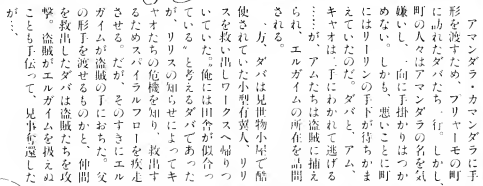 アマンダラ・カマンダラに手
形を渡すため、プリャーモの町
に訪れたダバたち一行。しかし、
町の人々はアマンダラの名を気
嫌いし、一向に手掛かりはつか
めない。しかも、悪いことに町
にはリーリンの手下が待ちかま
えていたのだ。ダバと、アム、
キャオは二手にわかれて逃げる
……が、アムたちは盗賊に捕え
られ、エルガイムの所在を詰問
される。
一方、ダバは見世物小屋で酷
使されていた小型有翼人、リリ
スを救い出しワークスへ帰りつ
いていた。俺には田舎が似合っ
ている〟と考えるダバであった
が、リリスの知らせによってキ
ャオたちの危機を知り、救出す
るためスパイラルフローを疾走
させる。だが、そのすきにエル
ガイムが盗賊の手におちた。父
の形手を渡せるものかと、仲間
を救出したダバは盗賊たちを攻
撃。盗賊がエルガイムを扱えな
ことも手伝って、見事奪還した
が…、